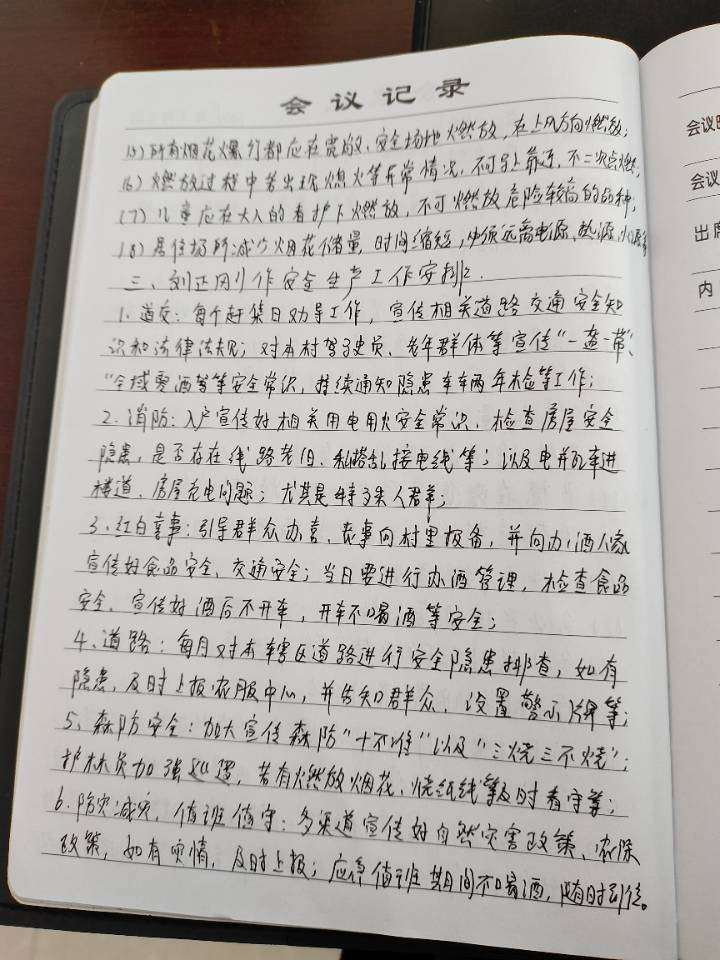 会议记录
(5) 所有烟花爆竹都应在宽敞、安全场地燃放，在上风方向燃放；
(6) 燃放过程中若出现熄火等异常情况，不可马上靠近，不二次点燃；
(7) 儿童应在大人的看护下燃放，不可燃放危险较高的品种；
(8) 居住场所减少烟花储量，时间缩短，必须远离电源、热源、火源等
三、刘正刚作安全生产工作安排。
1、道交：每个赶集日劝导工作，宣传相关道路交通安全知
识和法律法规；对本村驾驶员、老年群体等宣传"一盔一带"、
"全域零酒驾等安全常识，持续通知隐患车车辆年检等工作；
2、消防：入户宣传好相关用电用火安全常识、检查房屋安全
隐患，是否存在线路老旧、私搭乱接电线等；以及电并瓦车进
楼道、房屋充电问题；尤其是特殊人群；
3、红白喜事：引导群众办喜、丧事向村里报备，并向办酒人家
宣传好食品安全、交通安全；当日要进行办酒管理，检查食品
安全、宣传好酒后不开车，开车不喝酒等安全；
4、道路：每月对本辖区道路进行安全隐患排查，如有
隐患，及时上报农服中心，并告知群众、设置警示牌等；
5、森防安全：加大宣传森防"十不准"以及"三烧三不烧"；
护林员加强巡逻，若有燃放烟花、烧纸钱等及时看守等；
6、防灾减灾，值班值守：多渠道宣传好自然灾害政策、农保
政策，如有灾情，及时上报；应急值班期间不喝酒，随时到位。
会议时
会议
出席
内